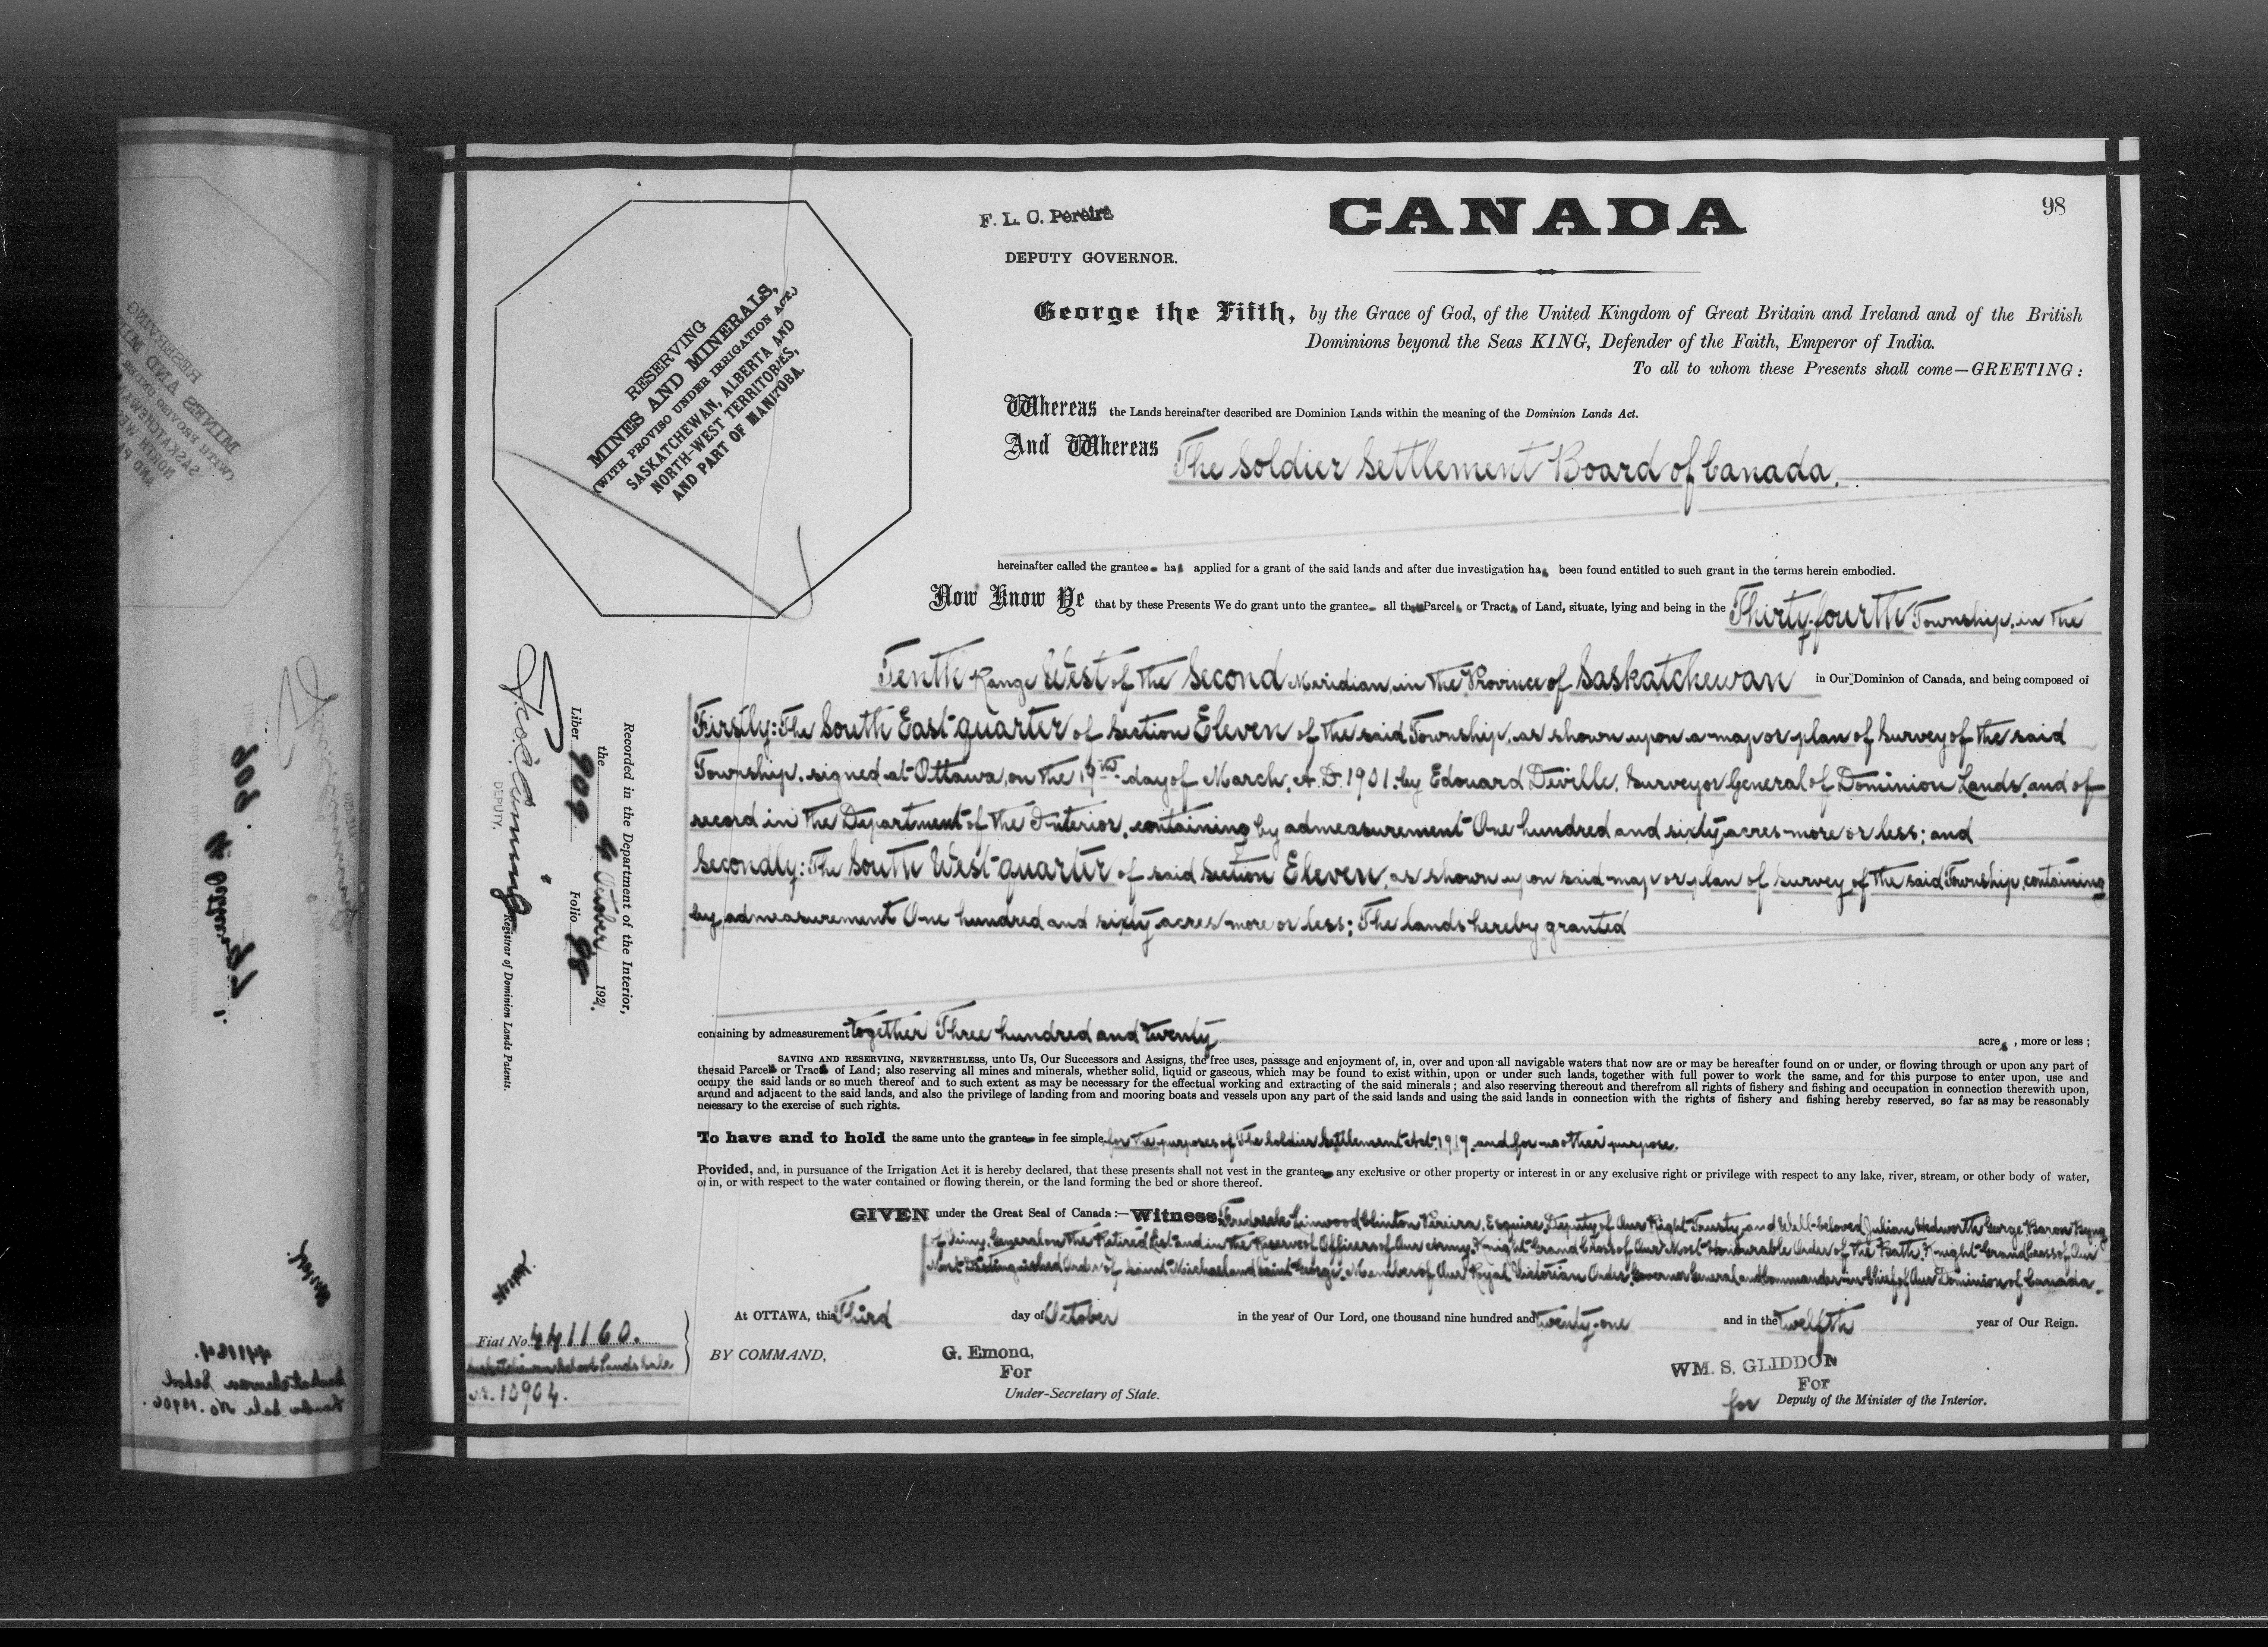 98
F. L. C. Pereira
CANADA
DEPUTY GOVERNOR.
RESERVING
MINES AND MINERALS,
(WITH PROVISO UNDER IRRIGATION ACT.)
SASKATCHEWAN, ALBERTA AND
NORTH-WEST TERRITORIES,
AND PART OF MANITOBA.
George the Fifth, by the Grace of God, of the United Kingdom of Great Britain and Ireland and of the British
Dominions beyond the Seas KING, Defender of the Faith, Emperor of India.
To all to whom these Presents shall come—GREETING:
Whereas the Lands hereinafter described are Dominion Lands within the meaning of the Dominion Lands Act.
And Whereas The Soldier Settlement Board of Canada,
hereinafter called the grantee has applied for a grant of the said lands and after due investigation has been found entitled to such grant in the terms herein embodied.
Now Know Ye that by these Presents We do grant unto the grantee all th Parcels or Tracts of Land, situate, lying and being in the Thirty-fourth Township, in the
Tenth Range West of the Second Meridian, in the Province of Saskatchewan in Our Dominion of Canada, and being composed of
Firstly: The South East quarter of Section Eleven of the said Township, as shown upon a map or plan of Survey of the said
Township, signed at Ottawa, on the 19th day of March, A.D. 1901, by Edouard Deville, Surveyor General of Dominion Lands, and of
record in the Department of the Interior, containing by admeasurement One hundred and sixty acres more or less; and
Secondly: The South West quarter of said Section Eleven, as shown upon said map or plan of Survey of the said Township, containing
by admeasurement One hundred and sixty acres more or less; The lands hereby granted
containing by admeasurement together Three hundred and twenty acres, more or less;
SAVING AND RESERVING, NEVERTHELESS, unto Us, Our Successors and Assigns, the free uses, passage and enjoyment of, in, over and upon all navigable waters that now are or may be hereafter found on or under, or flowing through or upon any part of
the said Parcels or Tracts of Land; also reserving all mines and minerals, whether solid, liquid or gaseous, which may be found to exist within, upon or under such lands, together with full power to work the same, and for this purpose to enter upon, use and
occupy the said lands or so much thereof and to such extent as may be necessary for the effectual working and extracting of the said minerals; and also reserving thereout and therefrom all rights of fishery and fishing and occupation in connection therewith upon,
around and adjacent to the said lands, and also the privilege of landing from and mooring boats and vessels upon any part of the said lands and using the said lands in connection with the rights of fishery and fishing hereby reserved, so far as may be reasonably
necessary to the exercise of such rights.
To have and to hold the same unto the grantee in fee simple, for the purposes of The Soldier Settlement Act, 1919, and for no other purpose.
Provided, and, in pursuance of the Irrigation Act it is hereby declared, that these presents shall not vest in the grantee any exclusive or other property or interest in or any exclusive right or privilege with respect to any lake, river, stream, or other body of water,
or in, or with respect to the water contained or flowing therein, or the land forming the bed or shore thereof.
GIVEN under the Great Seal of Canada:—Witness: Frederick Linwood Clinton Pereira, Esquire, Deputy of Our Right Trusty and Well-beloved Julian Hedworth George Baron Byng
of Vimy, General on the Retired List and in the Reserve of Officers of Our Army, Knight Grand Cross of Our Most Honourable Order of the Bath, Knight Grand Cross of Our
Most Distinguished Order of Saint Michael and Saint George, Member of Our Royal Victorian Order, Governor General and Commander-in-Chief of Our Dominion of Canada.
At OTTAWA, this Third day of October in the year of Our Lord, one thousand nine hundred and twenty-one and in the twelfth year of Our Reign.
BY COMMAND,
G. Emond,
For
Under-Secretary of State.
WM. S. GLIDDON
For
for Deputy of the Minister of the Interior.
Recorded in the Department of the Interior,
the 4 October 1921.
Liber 909 Folio 98
DEPUTY. Registrar of Dominion Lands Patents.
Fiat No. 441160.
Saskatchewan School Lands Sale
No. 10904.